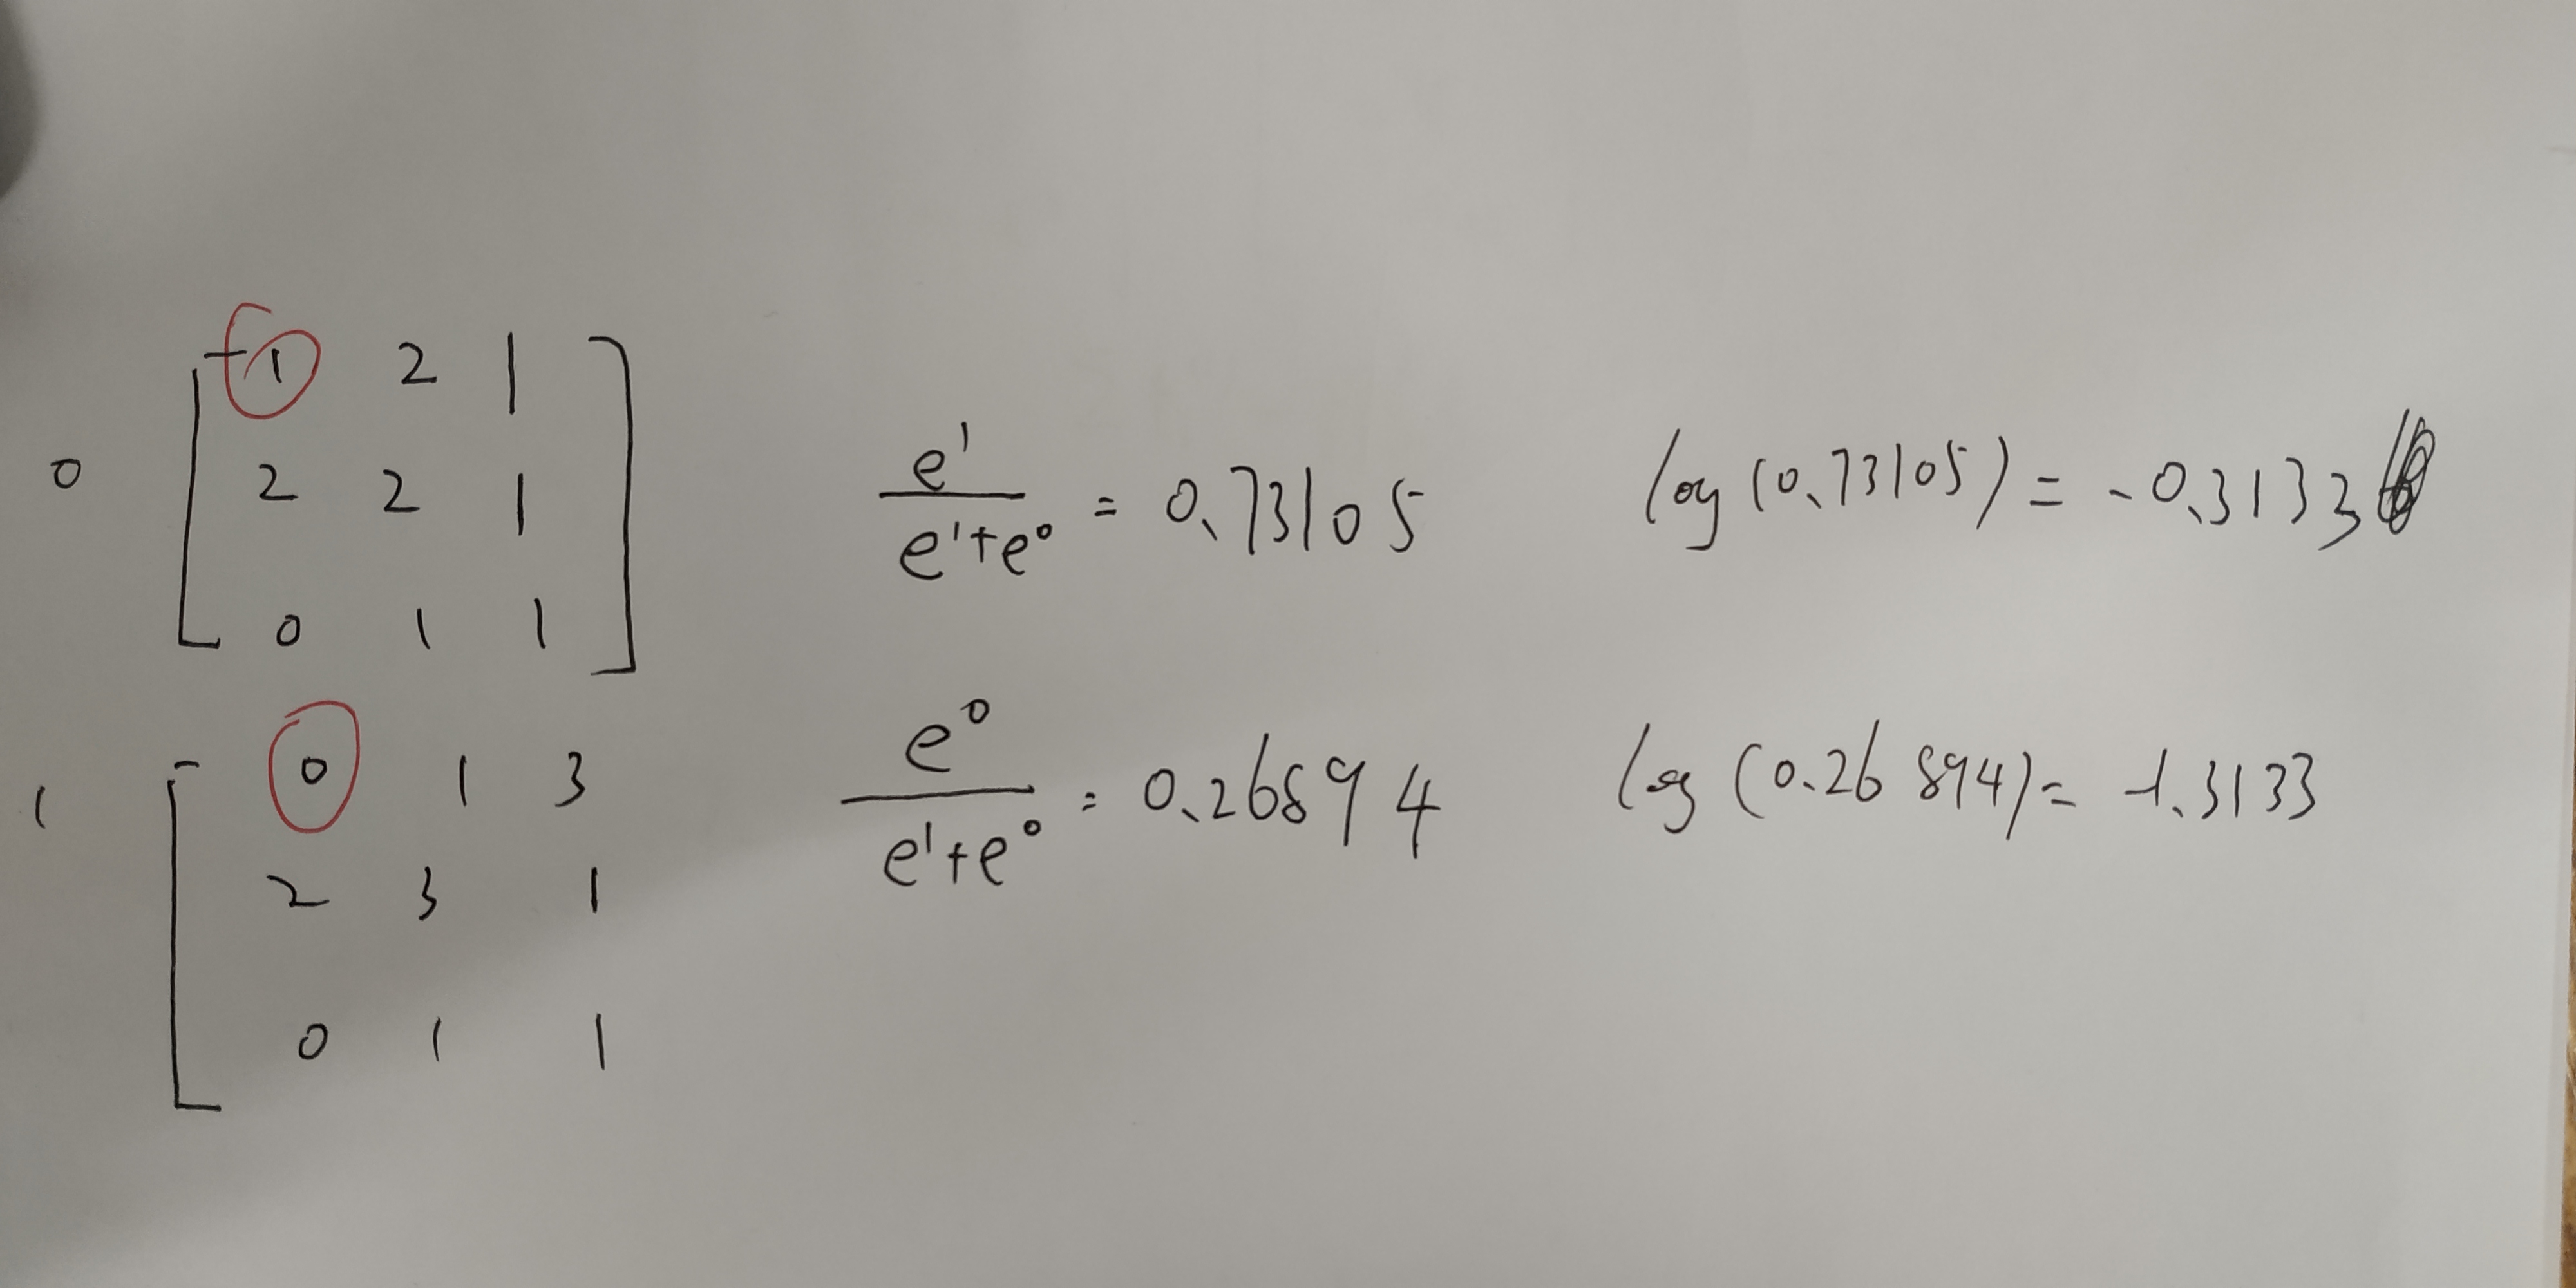 1 2 1
0 2 2 1
0 1 1
e¹ / (e¹+e⁰) = 0.73105
log (0.73105) = -0.3133
0 1 3
1 2 3 1
0 1 1
e⁰ / (e¹+e⁰) = 0.26894
log (0.26894) = -1.3133